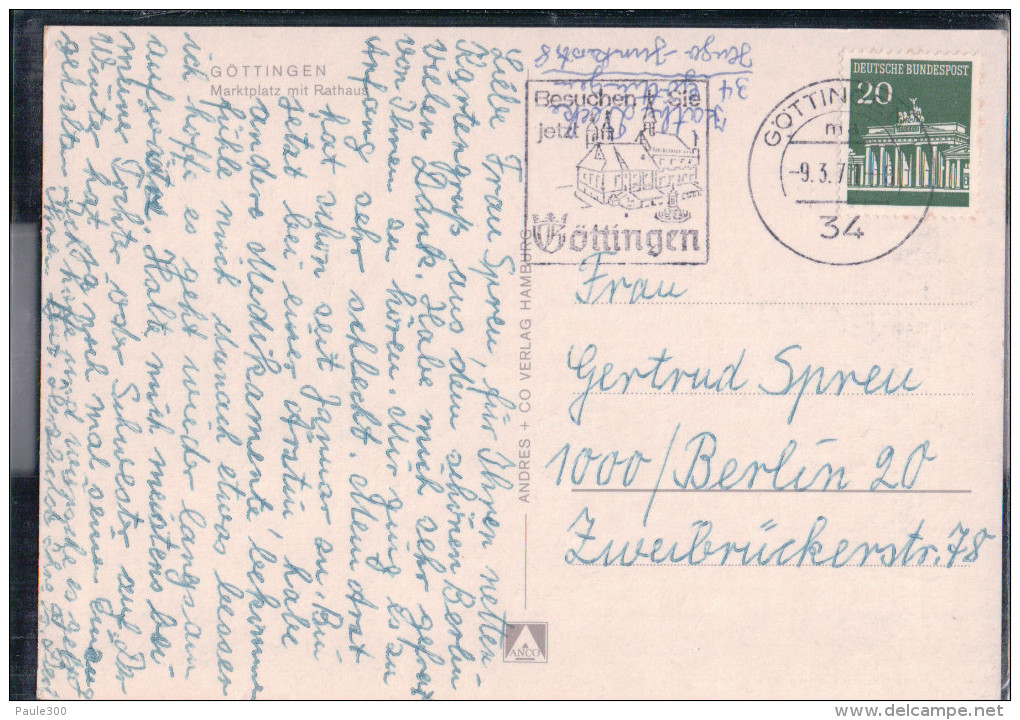 GÖTTINGEN
Marktplatz mit Rathaus
Liebe Frau Spreu, für Ihren netten
Kartengruß aus dem schönen Berlin
vielen Dank. Habe mich sehr gefreut
von Ihnen zu hören. Mir ging es zu
Anfang sehr schlecht. Mein Arzt
hat schon seit Januar zu. Bin
jetzt bei einer Ärztin, habe
andere Medikamente bekommen
fühle mich danach etwas besser
ich hoffe es geht wieder langsam
aufwärts. Halte mich meistens bei
meiner Tochter oder Schwester auf. Der
Winter hat ja noch mal seinen Einzug
gehalten. Ich hoffe und wünsche es geht
Ihnen gut. Es
ANDRES + CO VERLAG HAMBURG
ANCO
Hugo-Junkers-Str. 8
34
Besuchen Sie
jetzt
Göttingen
GÖTTINGEN
-9.3.7
34
DEUTSCHE BUNDESPOST
20
Frau
Gertrud Spreu
1000/Berlin 20
Zweibrückerstr. 78
Paule300